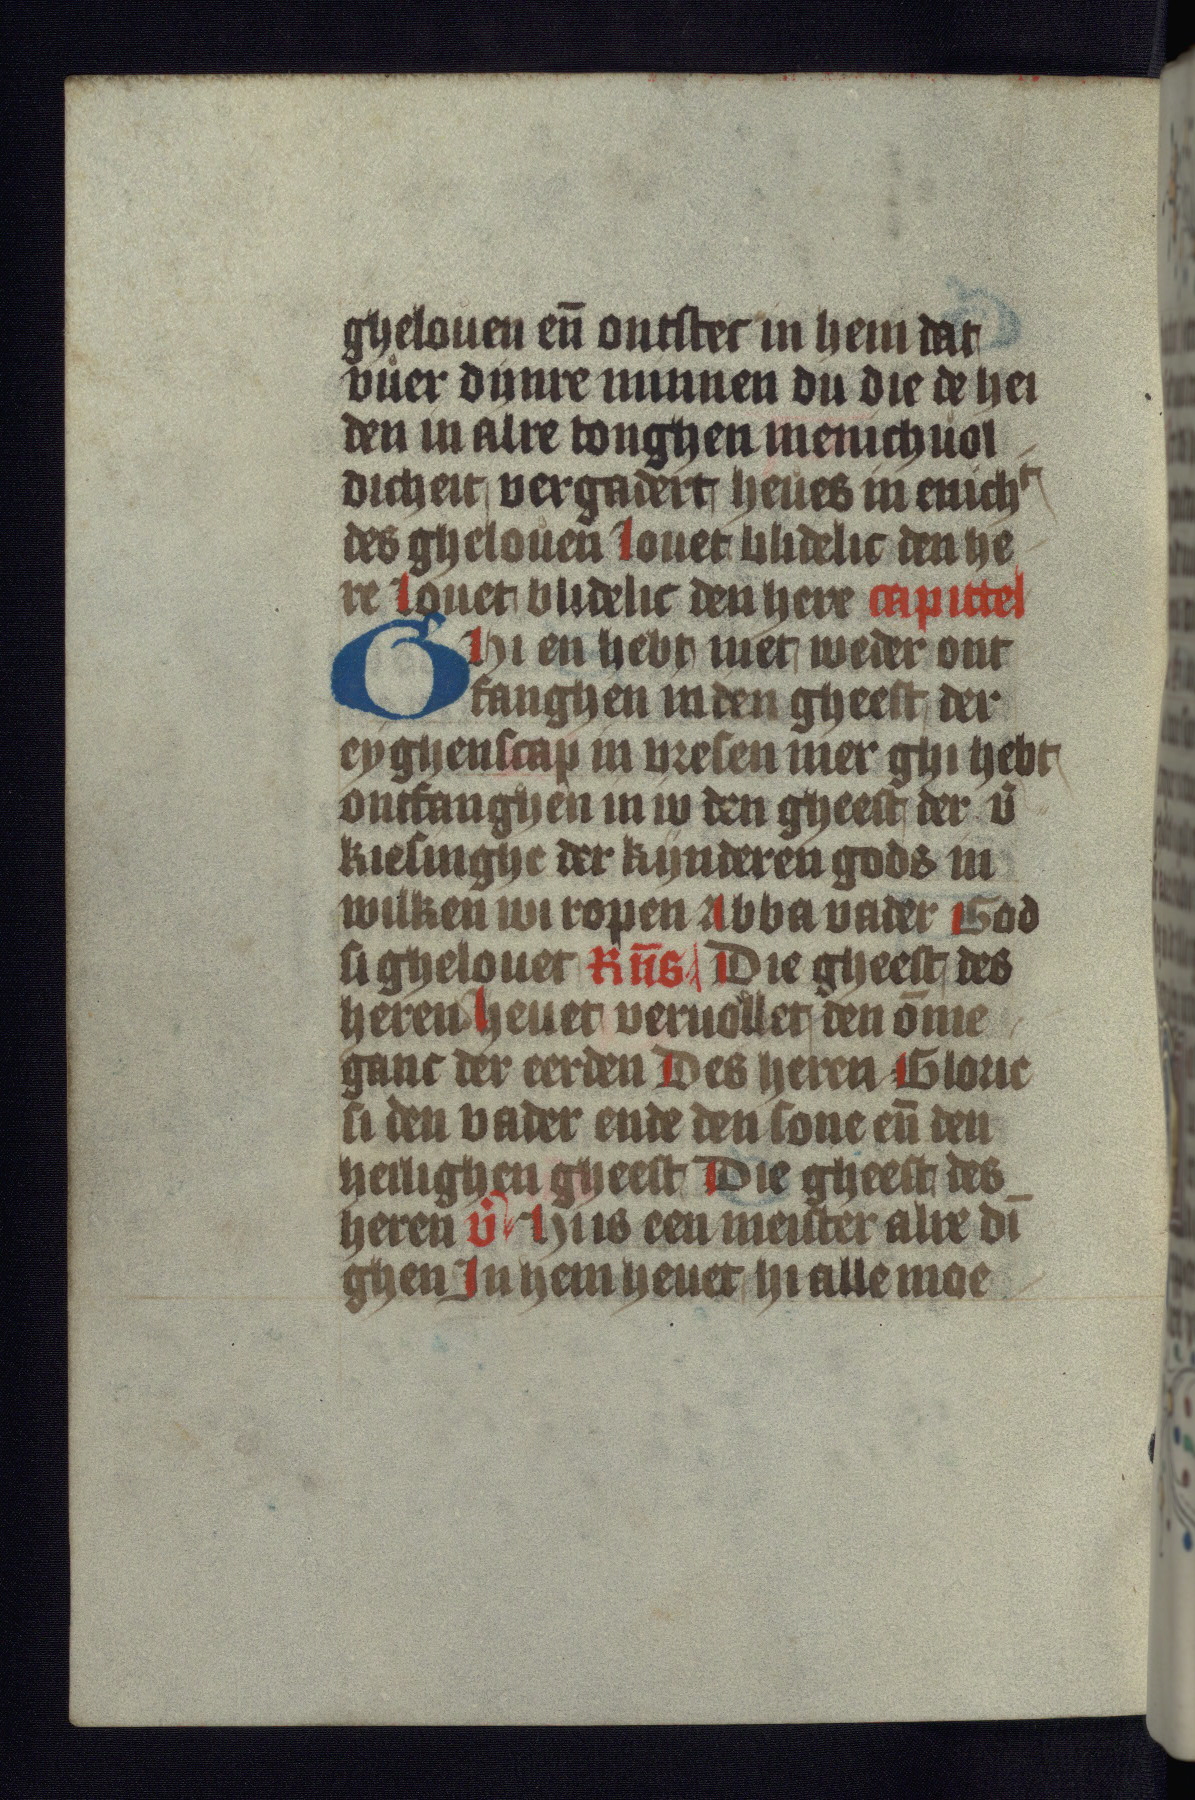 ghelouen en̄ ontstec in hem dat
vuer dijnre minnen du die de hei
den in alre tonghen menichuol
dicheit vergadert heues in enichᵗ
des ghelouen louet blidelic den he
re louet blidelic den here capittel
Ghi en hebt niet weder ont
fanghen in den gheest der
eyghenscap in vresen mer ghi hebt
ontfanghen in iv den gheest der v̄
kiesinghe der kijnderen gods in
wilken wi ropen Abba vader God
si ghelouet Rn̄s Die gheest des
heren heuet veruollet den ōme
ganc der eerden Des heren Glorie
si den vader ende den sone en̄ den
heilighen gheest Die gheest des
heren v̄ Hi is een meister alre dī
ghen In hem heuet hi alle moe